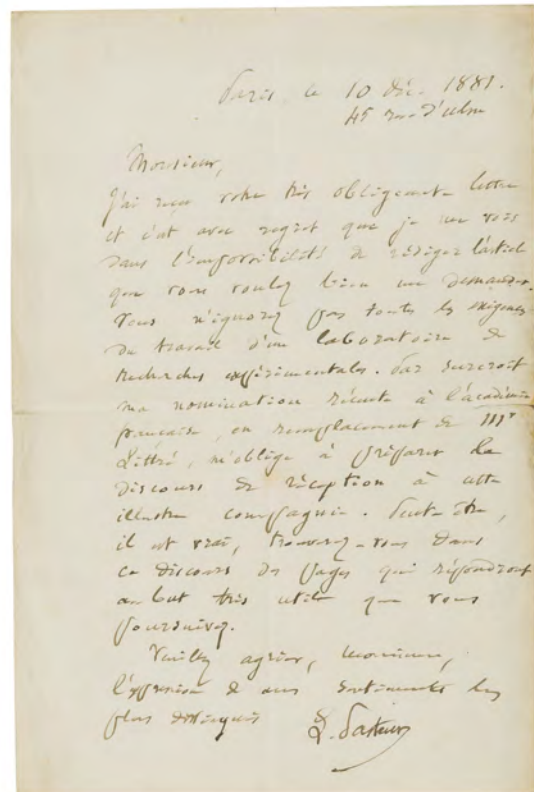 Paris, le 10 déc. 1881.
45 rue d'ulm
Monsieur,
J'ai reçu votre très obligeante lettre
et c'est avec regret que je me vois
dans l'impossibilité de rédiger l'article
que vous voulez bien me demander.
Vous n'ignorez pas toutes les exigences
du travail d'un laboratoire de
recherches expérimentales. Par surcroit
ma nomination récente à l'académie
française, en remplacement de Mr
Littré, m'oblige à préparer le
discours de réception à cette
illustre compagnie. Peut-être,
il est vrai, trouverez-vous dans
ce discours des pages qui répondront
au but très utile que vous
poursuivez.
Veuillez agréer, monsieur,
l'expression de mes sentiments les
plus distingués
L. Pasteur